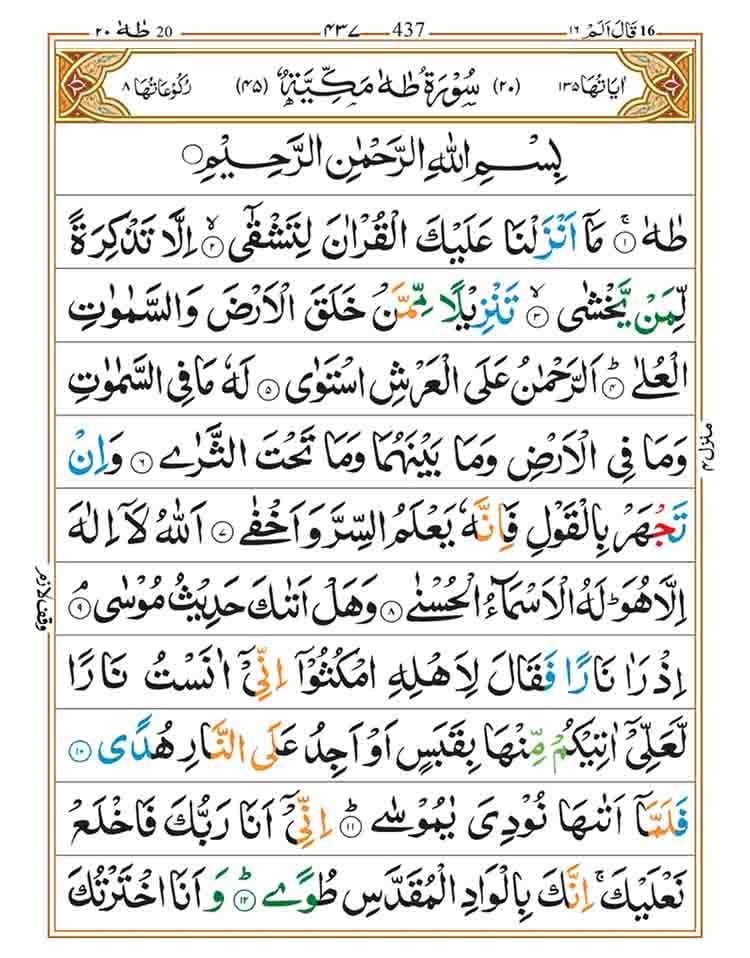 ١٦ قَالَ اَلَمْ 16 — 437 — ٤٣٧ — 20 طٰهٰ ٢٠
اٰيَاتُهَا ١٣٥ (٢٠) سُوْرَةُ طٰهٰ مَكِّيَّةٌ (٤٥) رُكُوْعَاتُهَا ٨
بِسْمِ اللّٰهِ الرَّحْمٰنِ الرَّحِيْمِ
طٰهٰ ۚ ١ مَاۤ اَنْزَلْنَا عَلَيْكَ الْقُرْاٰنَ لِتَشْقٰۤى ۙ ٢ اِلَّا تَذْكِرَةً
لِّمَنْ يَّخْشٰى ۙ ٣ تَنْزِيْلًا مِّمَّنْ خَلَقَ الْاَرْضَ وَالسَّمٰوٰتِ
الْعُلٰى ؕ ٤ اَلرَّحْمٰنُ عَلَى الْعَرْشِ اسْتَوٰى ٥ لَهٗ مَا فِى السَّمٰوٰتِ
وَمَا فِى الْاَرْضِ وَمَا بَيْنَهُمَا وَمَا تَحْتَ الثَّرٰے ٦ وَاِنْ
منزل ٤
تَجْهَرْ بِالْقَوْلِ فَاِنَّهٗ يَعْلَمُ السِّرَّ وَاَخْفٰے ٧ اَللّٰهُ لَاۤ اِلٰهَ
وقف لازم
اِلَّا هُوَ ؕ لَهُ الْاَسْمَآءُ الْحُسْنٰے ٨ وَهَلْ اَتٰىكَ حَدِيْثُ مُوْسٰى ۘ ٩
اِذْ رَاٰ نَارًا فَقَالَ لِاَهْلِهِ امْكُثُوْۤا اِنِّىْۤ اٰنَسْتُ نَارًا
لَّعَلِّىْۤ اٰتِيْكُمْ مِّنْهَا بِقَبَسٍ اَوْ اَجِدُ عَلَى النَّارِ هُدًى ١٠
فَلَمَّاۤ اَتٰىهَا نُوْدِىَ يٰمُوْسٰے ؕ ١١ اِنِّىْۤ اَنَا رَبُّكَ فَاخْلَعْ
نَعْلَيْكَ ۚ اِنَّكَ بِالْوَادِ الْمُقَدَّسِ طُوًے ؕ ١٢ وَاَنَا اخْتَرْتُكَ